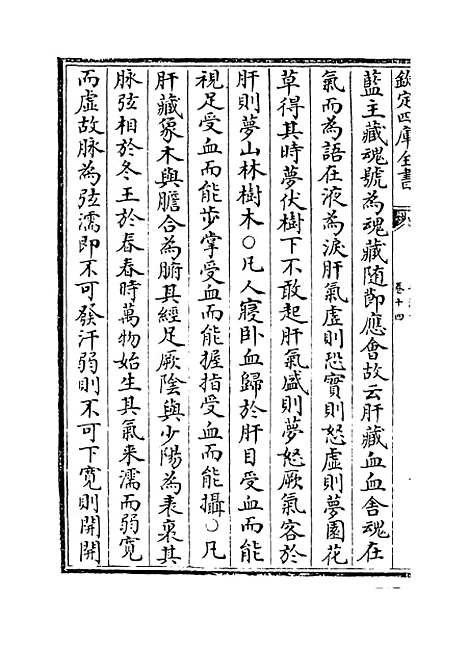 欽定四庫全書
卷十四
藍主藏魂號為魂藏随節應會故云肝藏血血舎魂在
氣而為語在液為淚肝氣虚則恐實則怒虚則夢園花
草得其時夢伏樹下不敢起肝氣盛則夢怒厥氣客於
肝則夢山林樹木○凡人寢卧血歸於肝目受血而能
視足受血而能歩掌受血而能握指受血而能攝○凡
肝藏象木與膽合為腑其經足厥陰與少陽為表裏其
脉弦相於冬王於春春時萬物始生其氣来濡而弱寛
而虚故脉為弦濡即不可發汗弱則不可下寛則開開